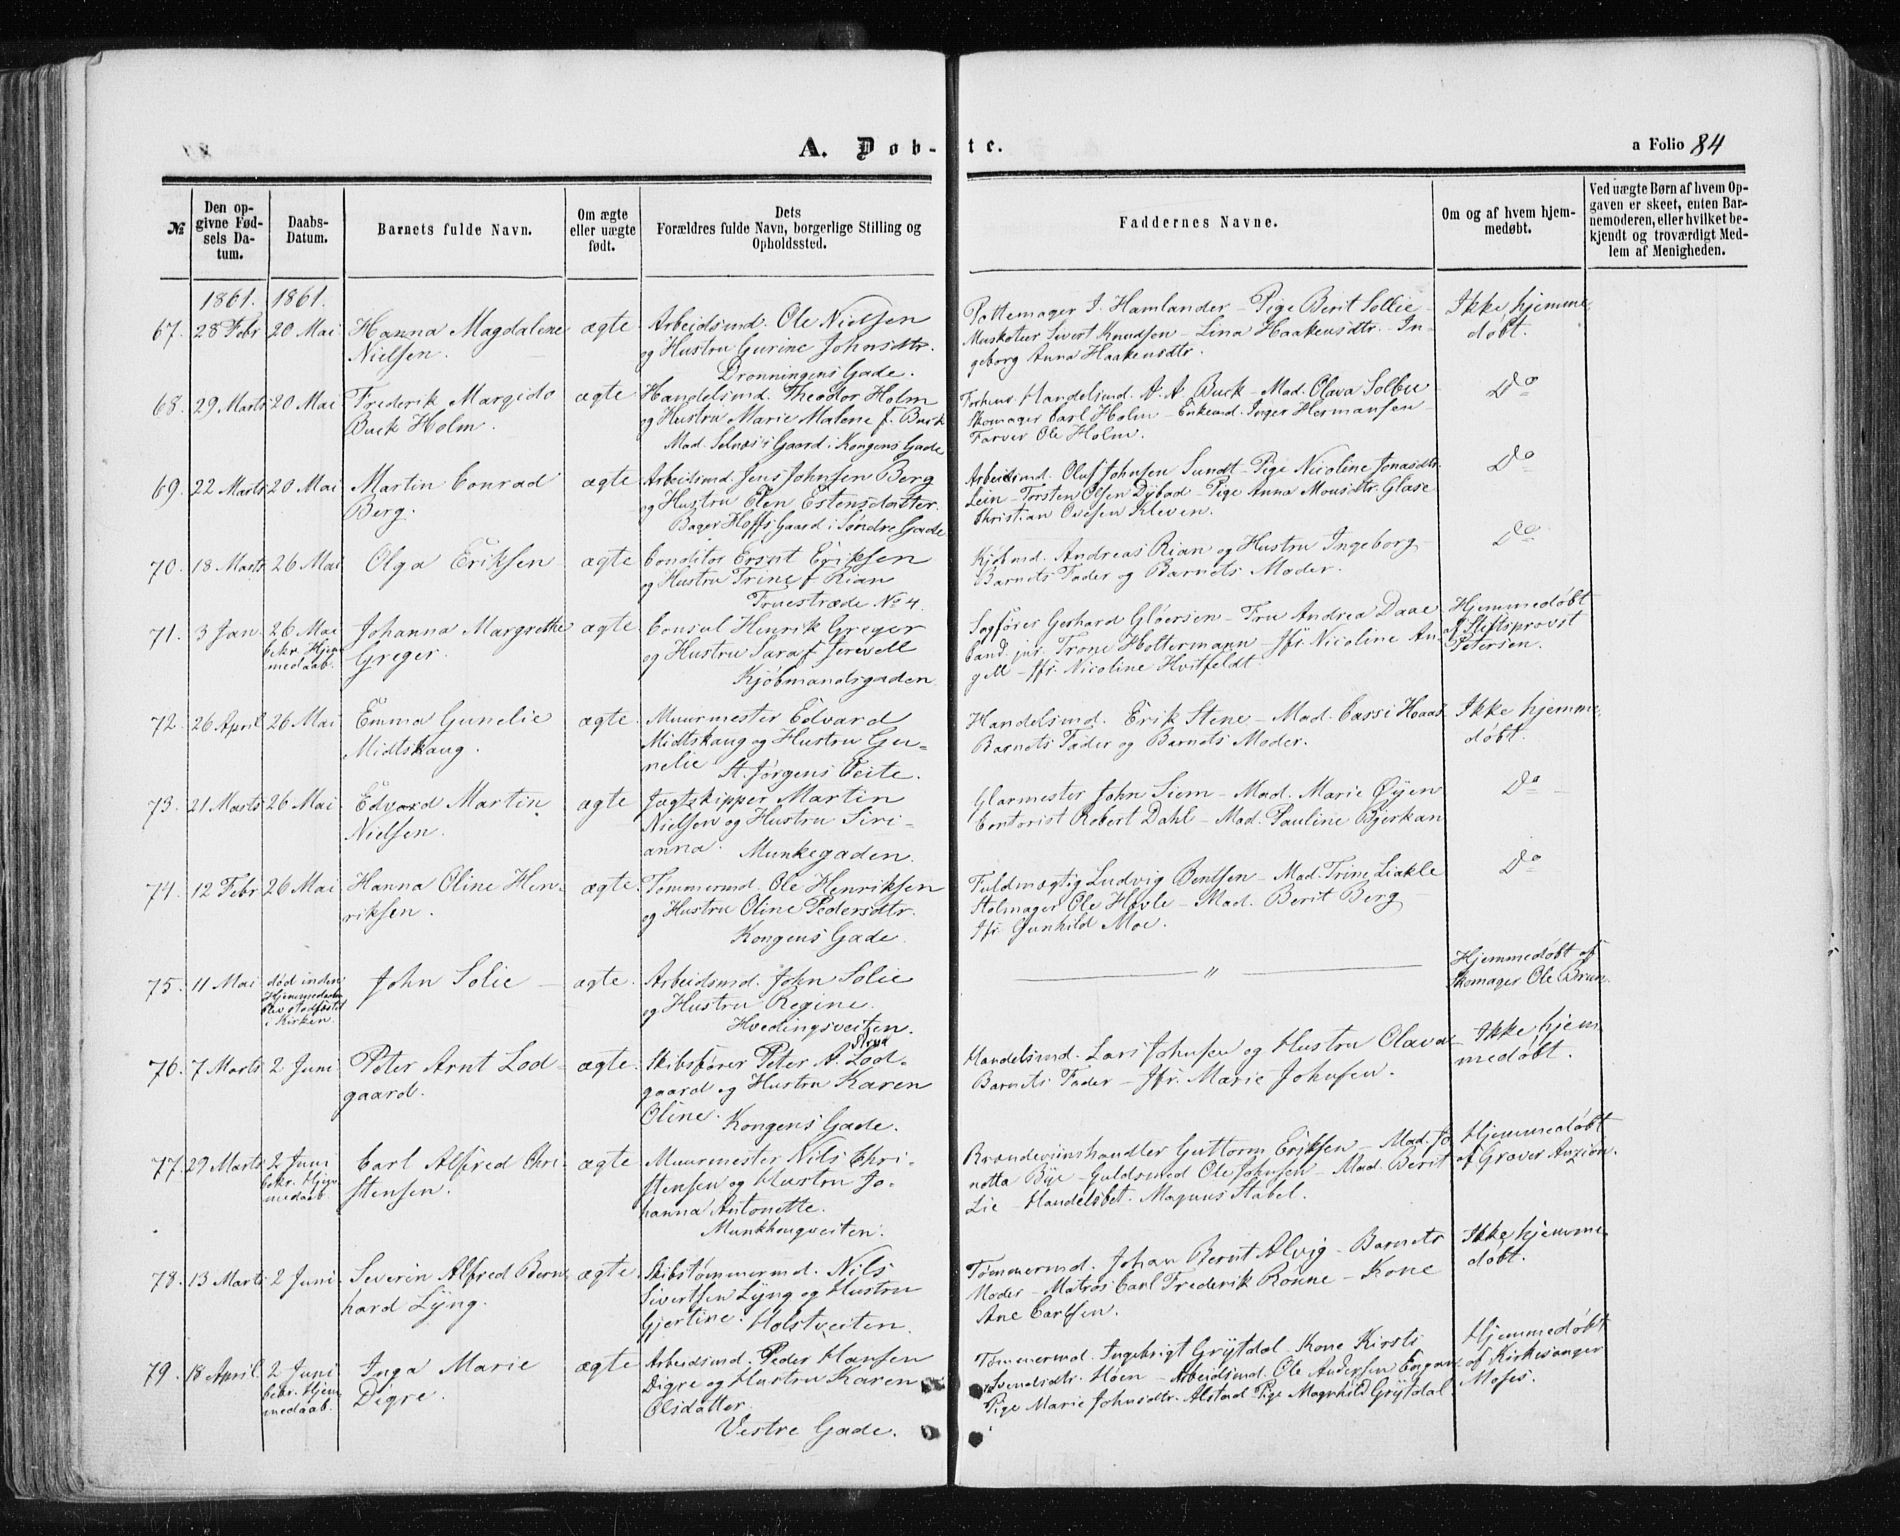 A. Døb-te.
a Folio 84
№
Den opgivne Fødsels Datum.
Daabs-Datum.
Barnets fulde Navn.
Om ægte eller uægte født.
Dets Forældres fulde Navn, borgerlige Stilling og Opholdssted.
Faddernes Navne.
Om og af hvem hjemmedøbt.
Ved uægte Børn af hvem Opgaven er skeet, enten Barnemoderen, eller hvilket bekjendt og troværdigt Medlem af Menigheden.
1861. 1861.
67. 28 Febr 20 Mai Hanna Magdalene ægte Arbeidsmd. Ole Nielsen
Nielsen. og Hustru Gurine Johnsdtr.
Dronningens Gade.
Pottemager I. Hamlander – Pige Berit Sollie –
Muskoteer Sivert Knudsen – Lina Haakensdtr. – In-
geborg Anna Haakensdtr.
Ikke hjemme
døbt.
68. 29 Marts 20 Mai Frederik Margido ægte Handelsmd. Theodor Holm
Buck Holm. og Hustru Marie Malene f. Buck
Mad. Selnæs's Gaard i Kongens Gade
Forhenv. Handelsmd. A. A. Buck – Mad. Olava Solbu –
Skomager Carl Holm – Enkemd. Inger Hermansen –
Farver Ole Holm.
Do
69. 22 Marts 20 Mai Martin Conrad ægte Arbeidsmd. Jens Johnsen Berg
Berg. og Hustru Elen Estensdatter.
Bager Hoffs Gaard i Søndre Gade
Arbeidsmd. Oluf Johnsen Sundt – Pige Nicoline Jonasdtr.
Lein – Torsten Olsen Dybad – Pige Anna Monsdtr. Glase
Christian Ovesen Kleven.
Do
70. 18 Marts 26 Mai Olga Eriksen ægte Conditor Ernst Eriksen
og Hustru Trine f. Rian
Fruestræde No 4.
Kjøbmd. Andreas Rian og Hustru Ingeborg –
Barnets Fader og Barnets Moder.
Do
71. 3 Jan. 26 Mai Johanna Margrethe ægte Consul Henrik Greger
bekr. Hjem Greger. og Hustru Sara f. Jervell
medaab. Kjøbmandsgaden
Sagfører Gerhard Gløersen – Fru Andrea Daae
Cand. jur. Trone Holtermann – Jfr. Nicoline An-
gell – Jfr. Nicoline Hvitfeldt.
Hjemmedøbt
af Stiftsprovst
Petersen.
72. 26 April 26 Mai Emma Gunelie ægte Muurmester Edvard
Midtskaug. Midtskaug og Hustru Gu-
nelie St. Jørgens Veite.
Handelsmd. Erik Stene – Mad. Cassi Haas
Barnets Fader og Barnets Moder.
Ikke hjemme
døbt.
73. 21 Marts 26 Mai Edvard Martin ægte Jagtskipper Martin
Nielsen. Nielsen og Hustru Siri-
anna. Munkegaden.
Glarmester John Siem – Mad. Marie Øyen
Contorist Robert Dahl – Mad. Pauline Bjerkan
Do
74. 12 Febr 26 Mai Hanna Oline Hen- ægte Tømmermd. Ole Henriksen
riksen. og Hustru Oline Pedersdtr.
Kongens Gade.
Fuldmægtig Ludvig Bentsen – Mad. Trine Liakle
Stolmager Ole Hovle – Mad. Berit Berg
Jfr. Gunhild Moe.
Do
75. 11 Mai død inden John Solie ægte. Arbeidsmd. John Solie
blev stadfæstet og Hustru Regine.
i Kirken. Hvedingsveiten.
— " —
Hjemmedøbt af
Skomager Ole Brun.
76. 7 Marts 2 Juni Peter Arnt Lod- ægte Skibsfører Peter A. Lod-
gaard. gaard og Hustru Karen
Oline. Kongens Gade.
Handelsmd. Lars Johnsen og Hustru Olava
Barnets Fader – Jfr. Marie Johnsen.
Ikke hjem
medøbt.
77. 29 Marts 2 Juni Carl Alfred Chri- ægte Muurmester Nils Chri-
bekr. Hjem stensen. stensen og Hustru Jo-
medaab. hanna Antonette.
Munkhougveiten.
Brændeviinshandler Guttorm Eriksen – Mad. Jo
netta Bye – Guldsmed Ole Johnsen – Mad. Berit
Lie – Handelsbet. Magnus Stabel.
Hjemmedøbt
af Graver Anzion.
78. 13 Marts 2 Juni Severin Alfred Bern ægte Skibstømmermd. Nils
hard Lyng. Sivertsen Lyng og Hustru
Gjertine. Holstveiten.
Tømmermd. Johan Bernt Alvig – Barnets
Moder – Matros Carl Frederik Rønne – Kone
Ane Carlsen.
Ikke hjemme-
døbt.
79. 18 April. 2 Juni Inga Marie ægte Arbeidsmd. Peder Hansen
bekr. Hjem Digre. Digre og Hustru Karen
medaab. Olsdatter.
Vestre Gade.
Tømmermd. Ingebrigt Grytdal – Kone Kirsti
Svendsdtr. Høen – Arbeidsmd. Ole Andersen Engan
Pige Marie Johnsdtr. Alstad Pige Magnhild Grytdal
Hjemmedøbt
af Kirkesanger
Moses.